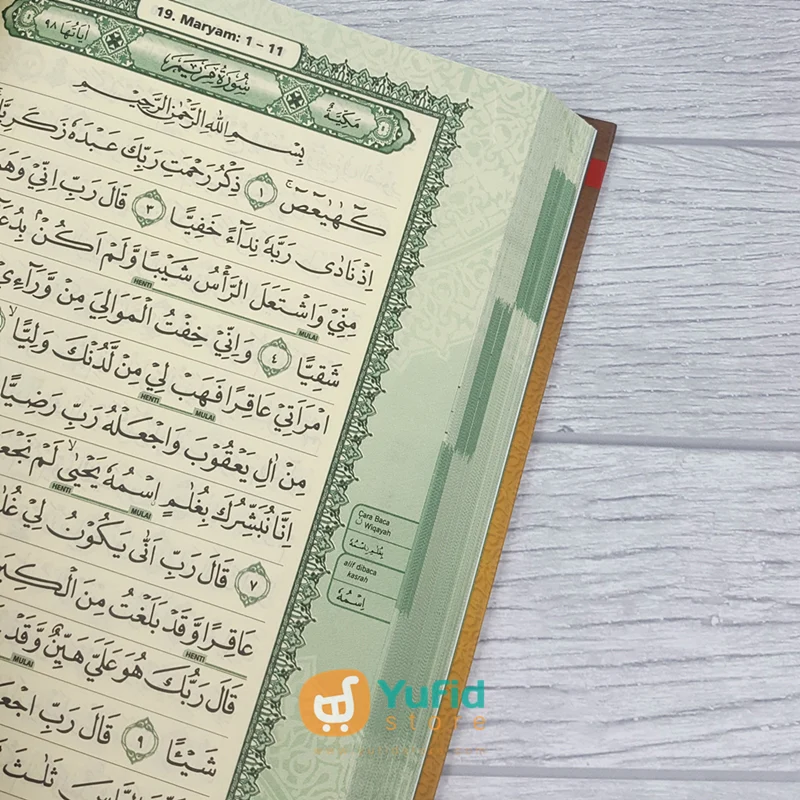 19. Maryam: 1 – 11
مَكِّيَّةٌ سُوْرَةُ مَرْيَمَ اٰيَاتُهَا ٩٨
بِسْمِ اللّٰهِ الرَّحْمٰنِ الرَّحِيْمِ
كۤهٰيٰعۤصۤ ۚ ١ ذِكْرُ رَحْمَتِ رَبِّكَ عَبْدَهٗ زَكَرِيَّا
اِذْ نَادٰى رَبَّهٗ نِدَاۤءً خَفِيًّا ٣ قَالَ رَبِّ اِنِّيْ وَهَ
مِنِّيْ وَاشْتَعَلَ الرَّأْسُ شَيْبًا وَّلَمْ اَكُنْۢ بِدُعَ
HENTI MULAI
شَقِيًّا ٤ وَاِنِّيْ خِفْتُ الْمَوَالِيَ مِنْ وَّرَاۤءِيْ
امْرَاَتِيْ عَاقِرًا فَهَبْ لِيْ مِنْ لَّدُنْكَ وَلِيًّا ۙ
HENTI MULAI
مِنْ اٰلِ يَعْقُوْبَ وَاجْعَلْهُ رَبِّ رَضِيًّا
اِنَّا نُبَشِّرُكَ بِغُلٰمِ اِۨسْمُهٗ يَحْيٰىۙ لَمْ نَجْعَ
HENTI MULAI
٧ قَالَ رَبِّ اَنّٰى يَكُوْنُ لِيْ غُلٰ
عَاقِرًا وَّقَدْ بَلَغْتُ مِنَ الْكِبَ
HENTI
قَالَ رَبُّكَ هُوَ عَلَيَّ هَيِّنٌ وَّقَدْ
MULAI
شَيْـًٔا ٩ قَالَ رَبِّ اجْعَ
النَّاسَ ثَلٰثَ
Cara Baca
ن Wiqayah
بِغُلٰمِ نِسْمُهٗ
alif dibaca
kasrah
اِسْمُهٗ
YuFid
store